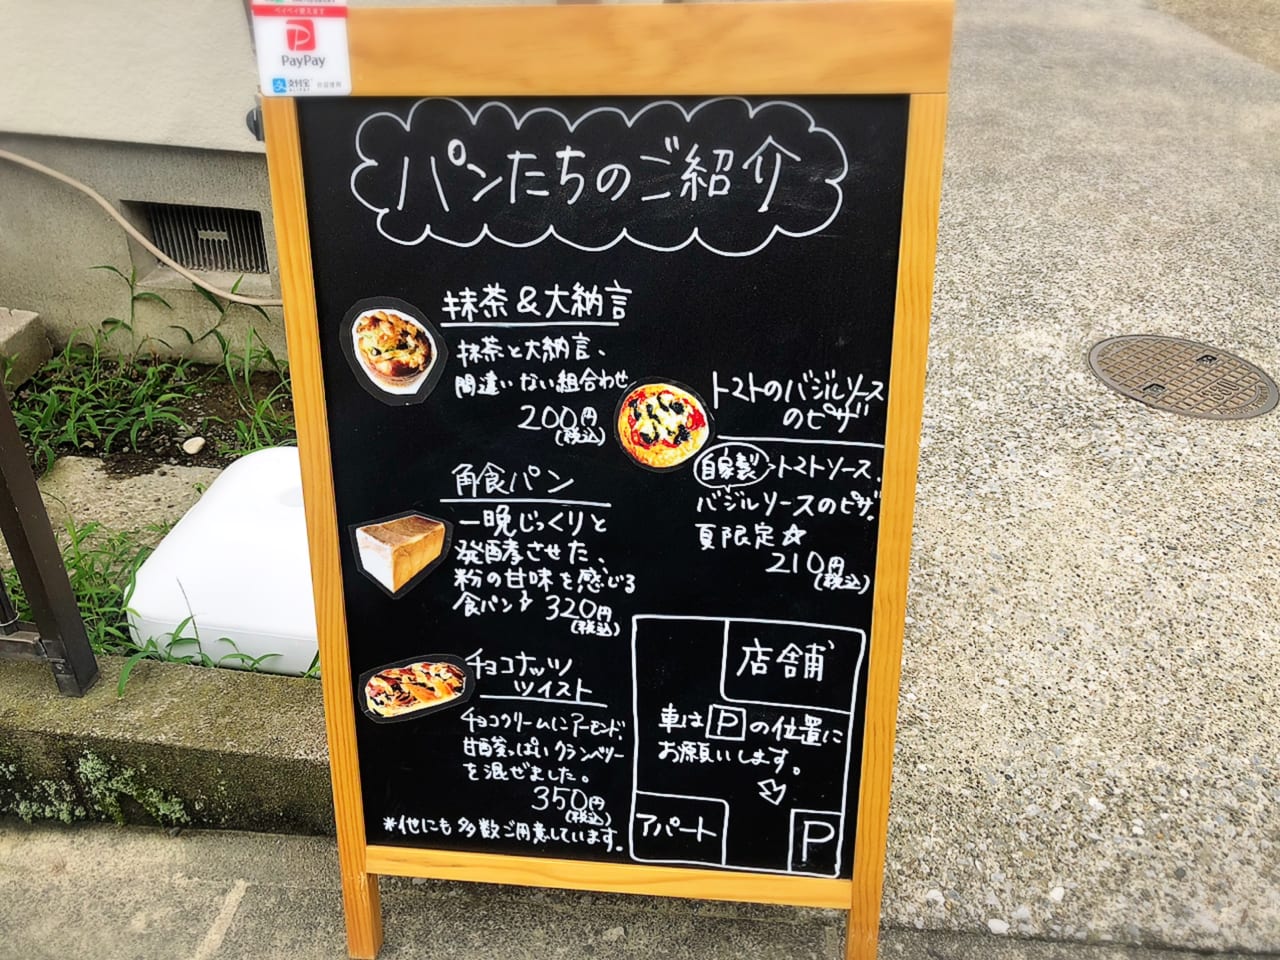 ペイペイ使えます
PayPay
支付宝
パンたちのご紹介
抹茶&大納言
抹茶と大納言、
間違いない組合わせ
200円
(税込)
角食パン
一晩じっくりと
発酵させた、
粉の甘味を感じる
食パン♪ 320円
(税込)
チョコナッツ
ツイスト
チョコクリームにアーモンド、
甘酸っぱいクランベリー
を混ぜました。
350円
(税込)
*他にも多数ご用意しています。
トマトのバジルソース
のピザ
自家製トマトソース、
バジルソースのピザ。
夏限定☆
210円
(税込)
店舗
車はPの位置に
お願いします。
アパート
P